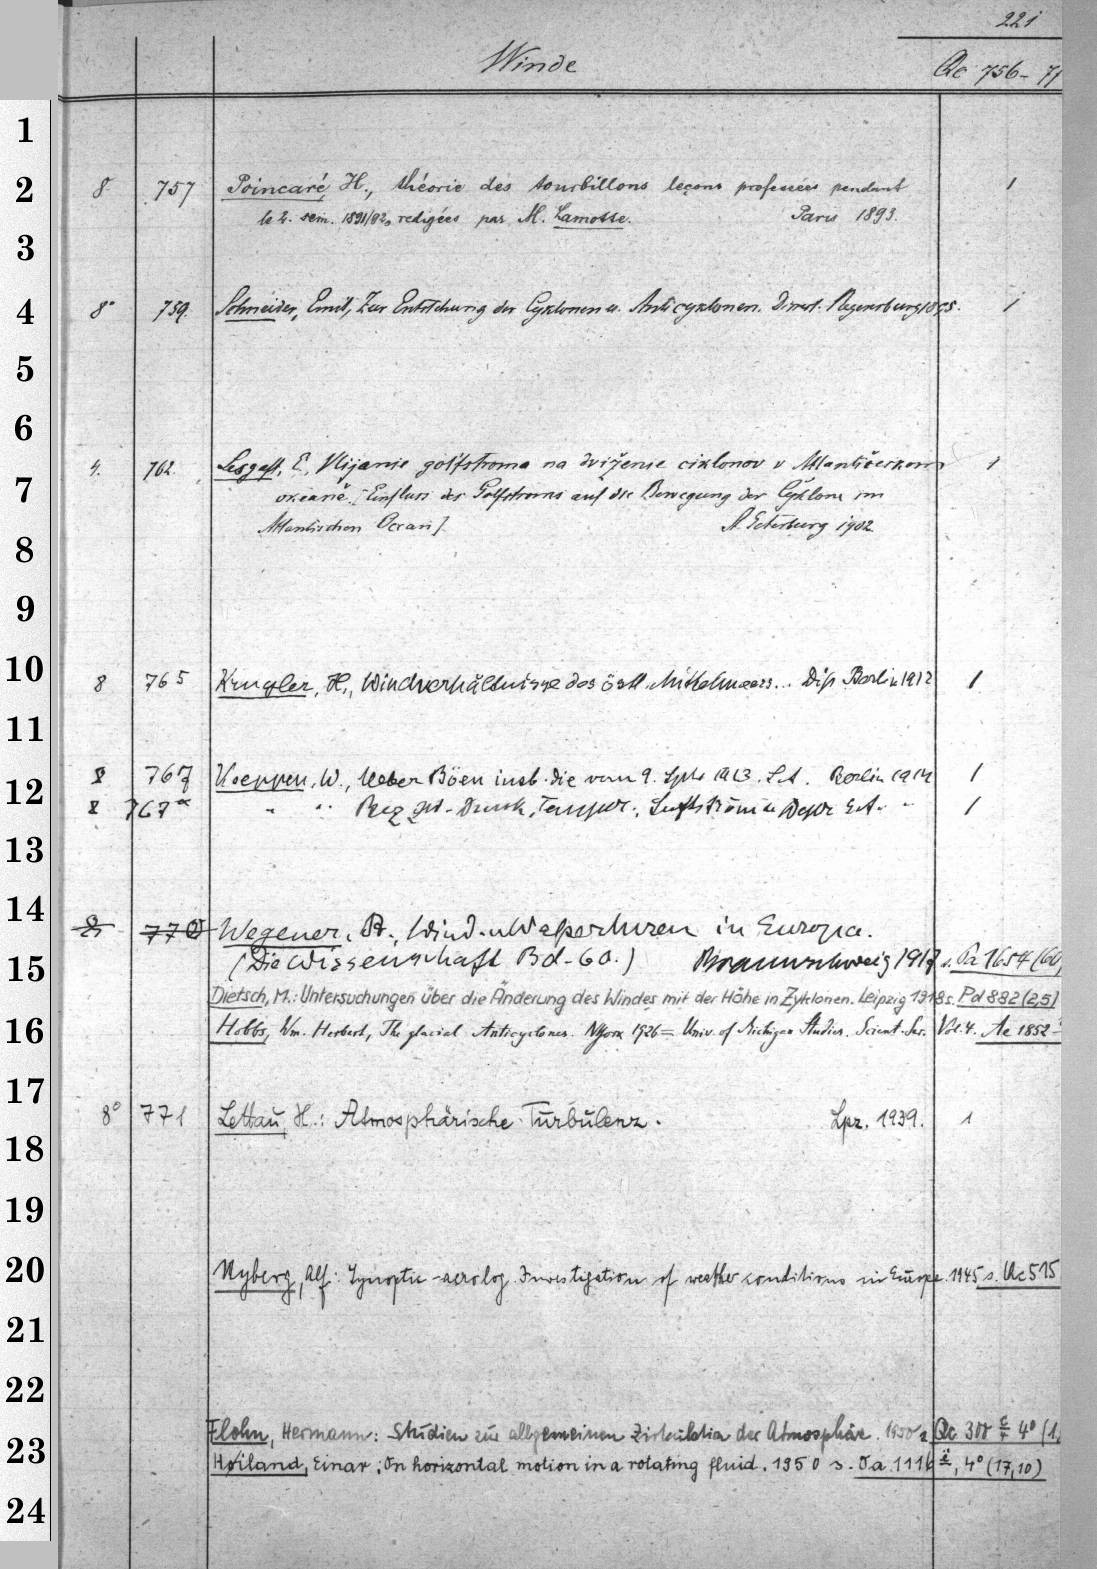 221
Winde
Qc 756-
1
2
3
4
5
6
7
8
9
10
11
12
13
14
15
16
17
18
19
20
21
22
23
24
8° 757 Poincaré, H., théorie des tourbillons leçons professées pendant 1
le 2. sem. 1891/92, redigées par M. Lamotte. Paris 1893.
8° 759. Schneider, Emil, Zur Entstehung der Cyklonen u. Anticyklonen. Dissert. Regensburg 1895. 1
4. 762. Lesgaft, E, Vlijanie golfstroma na dviženie ciklonov v Atlantičeskom 1
okeaně. [Einfluss des Golfstroms auf die Bewegung der Cyklone im
Atlantischen Ocean]. St. Petersburg 1902.
8 765 Krugler, H., Windverhältnisse des östl. Mittelmeers... Diss Berlin 1912 1
8 767 Koeppen, W., Ueber Böen insb. die vom 9. Spt. 1913. S.A. Berlin 1914 1
8 767a " " Bez zw. Druck, Temper., Luftström u. S.A. " " 1
8 770 Wegener, A., Wind- u Wasserhosen in Europa.
(Die Wissenschaft Bd-60.) Braunschweig 1917 s. Oa 1654 (60)
Dietsch, M.: Untersuchungen über die Änderung des Windes mit der Höhe in Zyklonen. Leipzig 1918 s. Pd 882 (2,5)
Hobbs, Wm. Herbert, The glacial Anticyclones. NYork 1926 = Univ. of Michigan Studies. Scient. Ser. Vol. 4. Ac 1852
8° 771 Lettau, H.: Atmosphärische Turbulenz. Lpz. 1939. 1
Nyberg, Alf: Synoptic-aerolog. Investigation of weather conditions in Europe. 1945 s. Qc 515
Flohn, Hermann: Studien zur allgemeinen Zirkulation der Atmosphäre. 1950 s. Qc 308 4° (1,
Høiland, Einar: On horizontal motion in a rotating fluid. 1950 s. Oa 1116 , 4° (17,10)